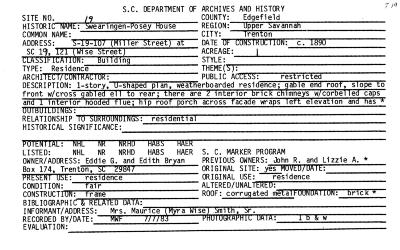 S.C. DEPARTMENT OF ARCHIVES AND HISTORY
SITE NO. 19 COUNTY: Edgefield
HISTORIC NAME: Swearingen-Posey House REGION: Upper Savannah
COMMON NAME: CITY: Trenton
ADDRESS: S-19-107 (Miller Street) at DATE OF CONSTRUCTION: c. 1890
SC 19, 121 (Wise Street) ACREAGE: 1
CLASSIFICATION: Building STYLE:
TYPE: Residence THEME(S):
ARCHITECT/CONTRACTOR: PUBLIC ACCESS: restricted
DESCRIPTION: 1-story, U-shaped plan, weatherboarded residence; gable end roof, slope to
front w/cross gabled ell to rear; there are 2 interior brick chimneys w/corbelled caps
and 1 interior hooded flue; hip roof porch across facade wraps left elevation and has *
OUTBUILDINGS:
RELATIONSHIP TO SURROUNDINGS: residential
HISTORICAL SIGNIFICANCE:
POTENTIAL: NHL NR NRHD HABS HAER
LISTED: NHL NR NRHD HABS HAER S.C. MARKER PROGRAM
OWNER/ADDRESS: Eddie G. and Edith Bryan PREVIOUS OWNERS: John R. and Lizzie A. *
Box 174, Trenton, SC 29847 ORIGINAL SITE: yes MOVED/DATE:
PRESENT USE: residence ORIGINAL USE: residence
CONDITION: fair ALTERED/UNALTERED:
CONSTRUCTION: frame ROOF: corrugated metal FOUNDATION: brick *
BIBLIOGRAPHIC & RELATED DATA:
INFORMANT/ADDRESS: Mrs. Maurice (Myra Wise) Smith, Sr.
RECORDED BY/DATE: MWF 7/7/83 PHOTOGRAPHIC DATA: 1 b & w
EVALUATION: